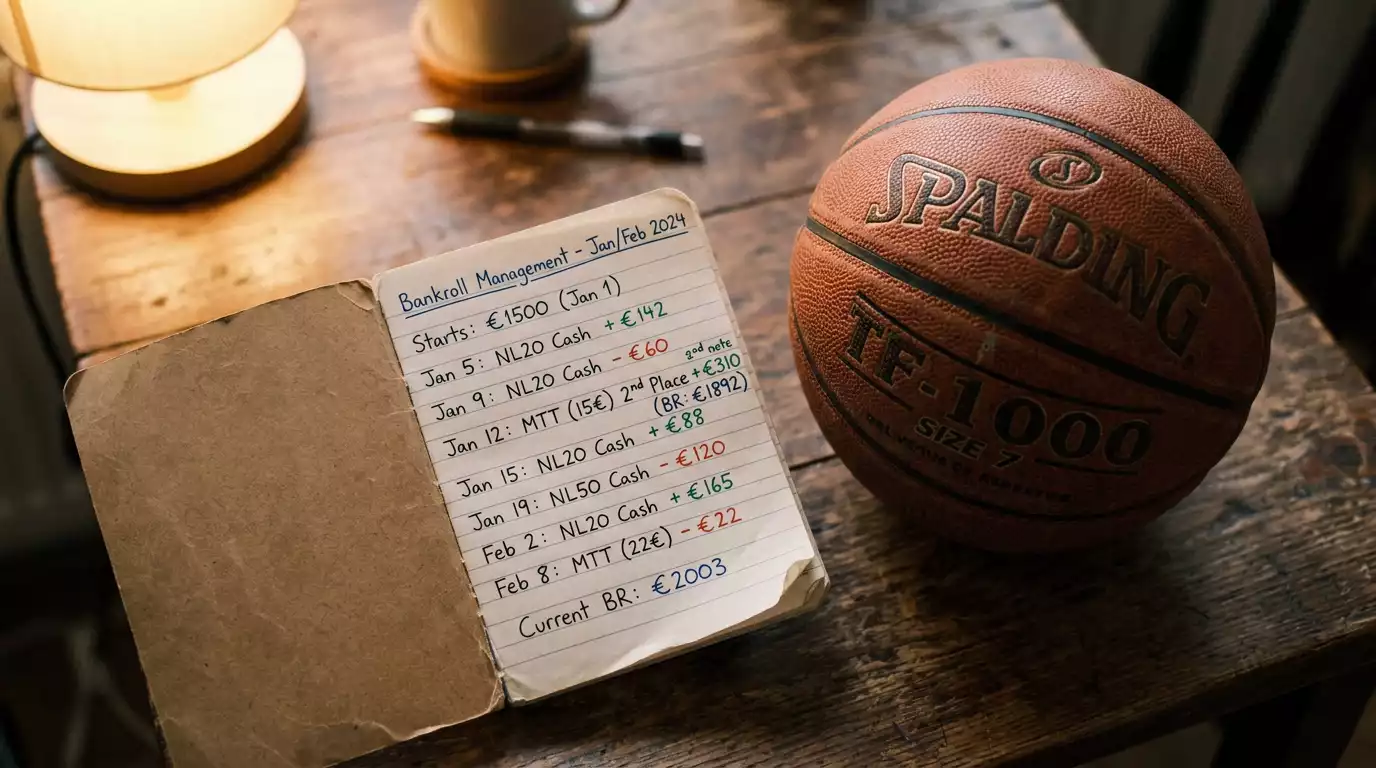 Bankroll Management - Jan/Feb 2024
Starts: €1500 (Jan 1)
Jan 5: NL20 Cash + €142
Jan 9: NL20 Cash - €60
2nd note
Jan 12: MTT (15€) 2nd Place + €310
(BR: €1892)
Jan 15: NL20 Cash + €88
Jan 19: NL50 Cash - €120
Feb 2: NL20 Cash + €165
Feb 8: MTT (22€) - €22
Current BR: €2003
S
SPALDING
TF-1000
SIZE 7